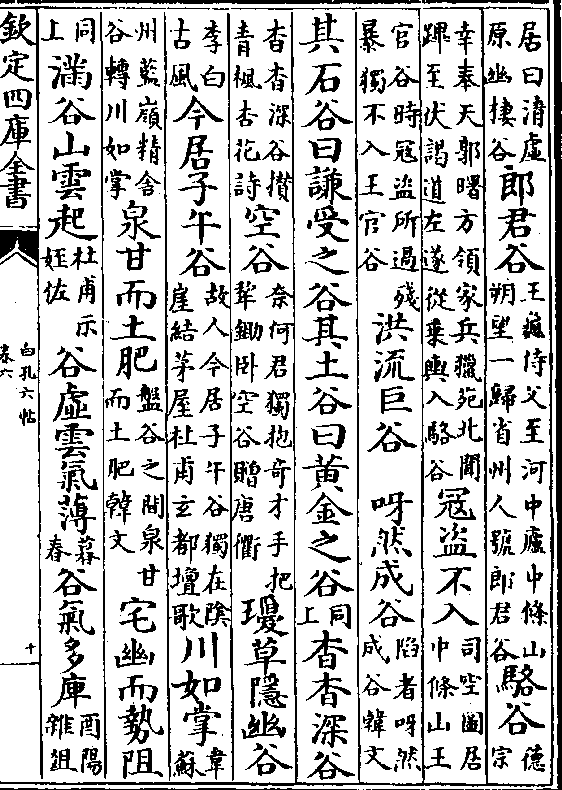 居曰清虛原幽棲谷郎君谷王龜侍父至河中廬中條山朔望一歸省州人號郎君谷駱谷德宗
幸奉天郭曙方領家兵獵苑北聞蹕至伏謁道左遂從乗輿入駱谷寇盜不入司空圖居中條山王
官谷時寇盜所過殘暴獨不入王官谷洪流巨谷 呀然成谷陷者呀然成谷韓文
其石谷曰謙受之谷其土谷曰黄金之谷同上杳杳深谷
杳杳深谷攅青楓杏花詩空谷柰何君獨抱竒才手把犂鋤卧空谷贈唐衢瓊草隱幽谷
李白古風今居子午谷故人今居子午谷獨在陰崖結茅屋杜甫玄都壇歌川如掌韋蘇
州藍嶺精舍谷轉川如掌泉甘而土肥盤谷之間泉甘而土肥韓文宅幽而勢阻
同上滿谷山雲起杜甫示姪佐谷虛雲氣薄暮春谷氣多庫酉陽雜俎
欽定四庫全書
白孔六帖
卷六
十